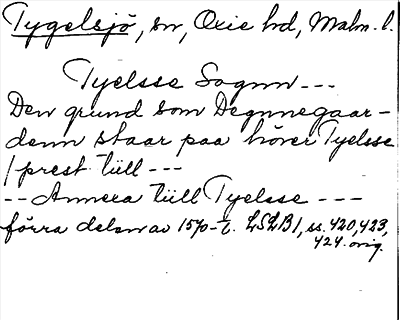 Tygelsjö, sn, Oxie hd, Malm. l.
Tyelsse Sognn ---
Den grund som Degnnegaar-
denn staar paa hörer Tyelsse
/prest till ---
-- Annexa till Tyelsse ---
förra delen av 1570-t. LSLB1, ss. 420, 423,
424. orig.